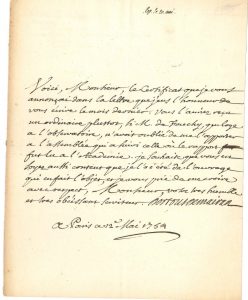 Rep. le 20 mai.
Voicy, Monsieur, le Certificat que je vous
annonçai dans la lettre que j'eus l'honneur de
vous écrire le mois dernier. vous l'auriez
un ordinaire plustot, si M. de Fouchy, qui loge
a l'observatoire, n'avoit oublié de me l'apporter
a l'assemblée qui a suivi celle où le rapport
fut lu a l'Academie. je souhaite que vous en
soyez aussi content que je l'ai été de l'ouvrage
qui en fait l'objet, et je vous prie de me croire
avec respect, Monsieur, votre tres humble
et tres obeissant serviteur. Dortous de mairan
a Paris ce 12e Mai 1754